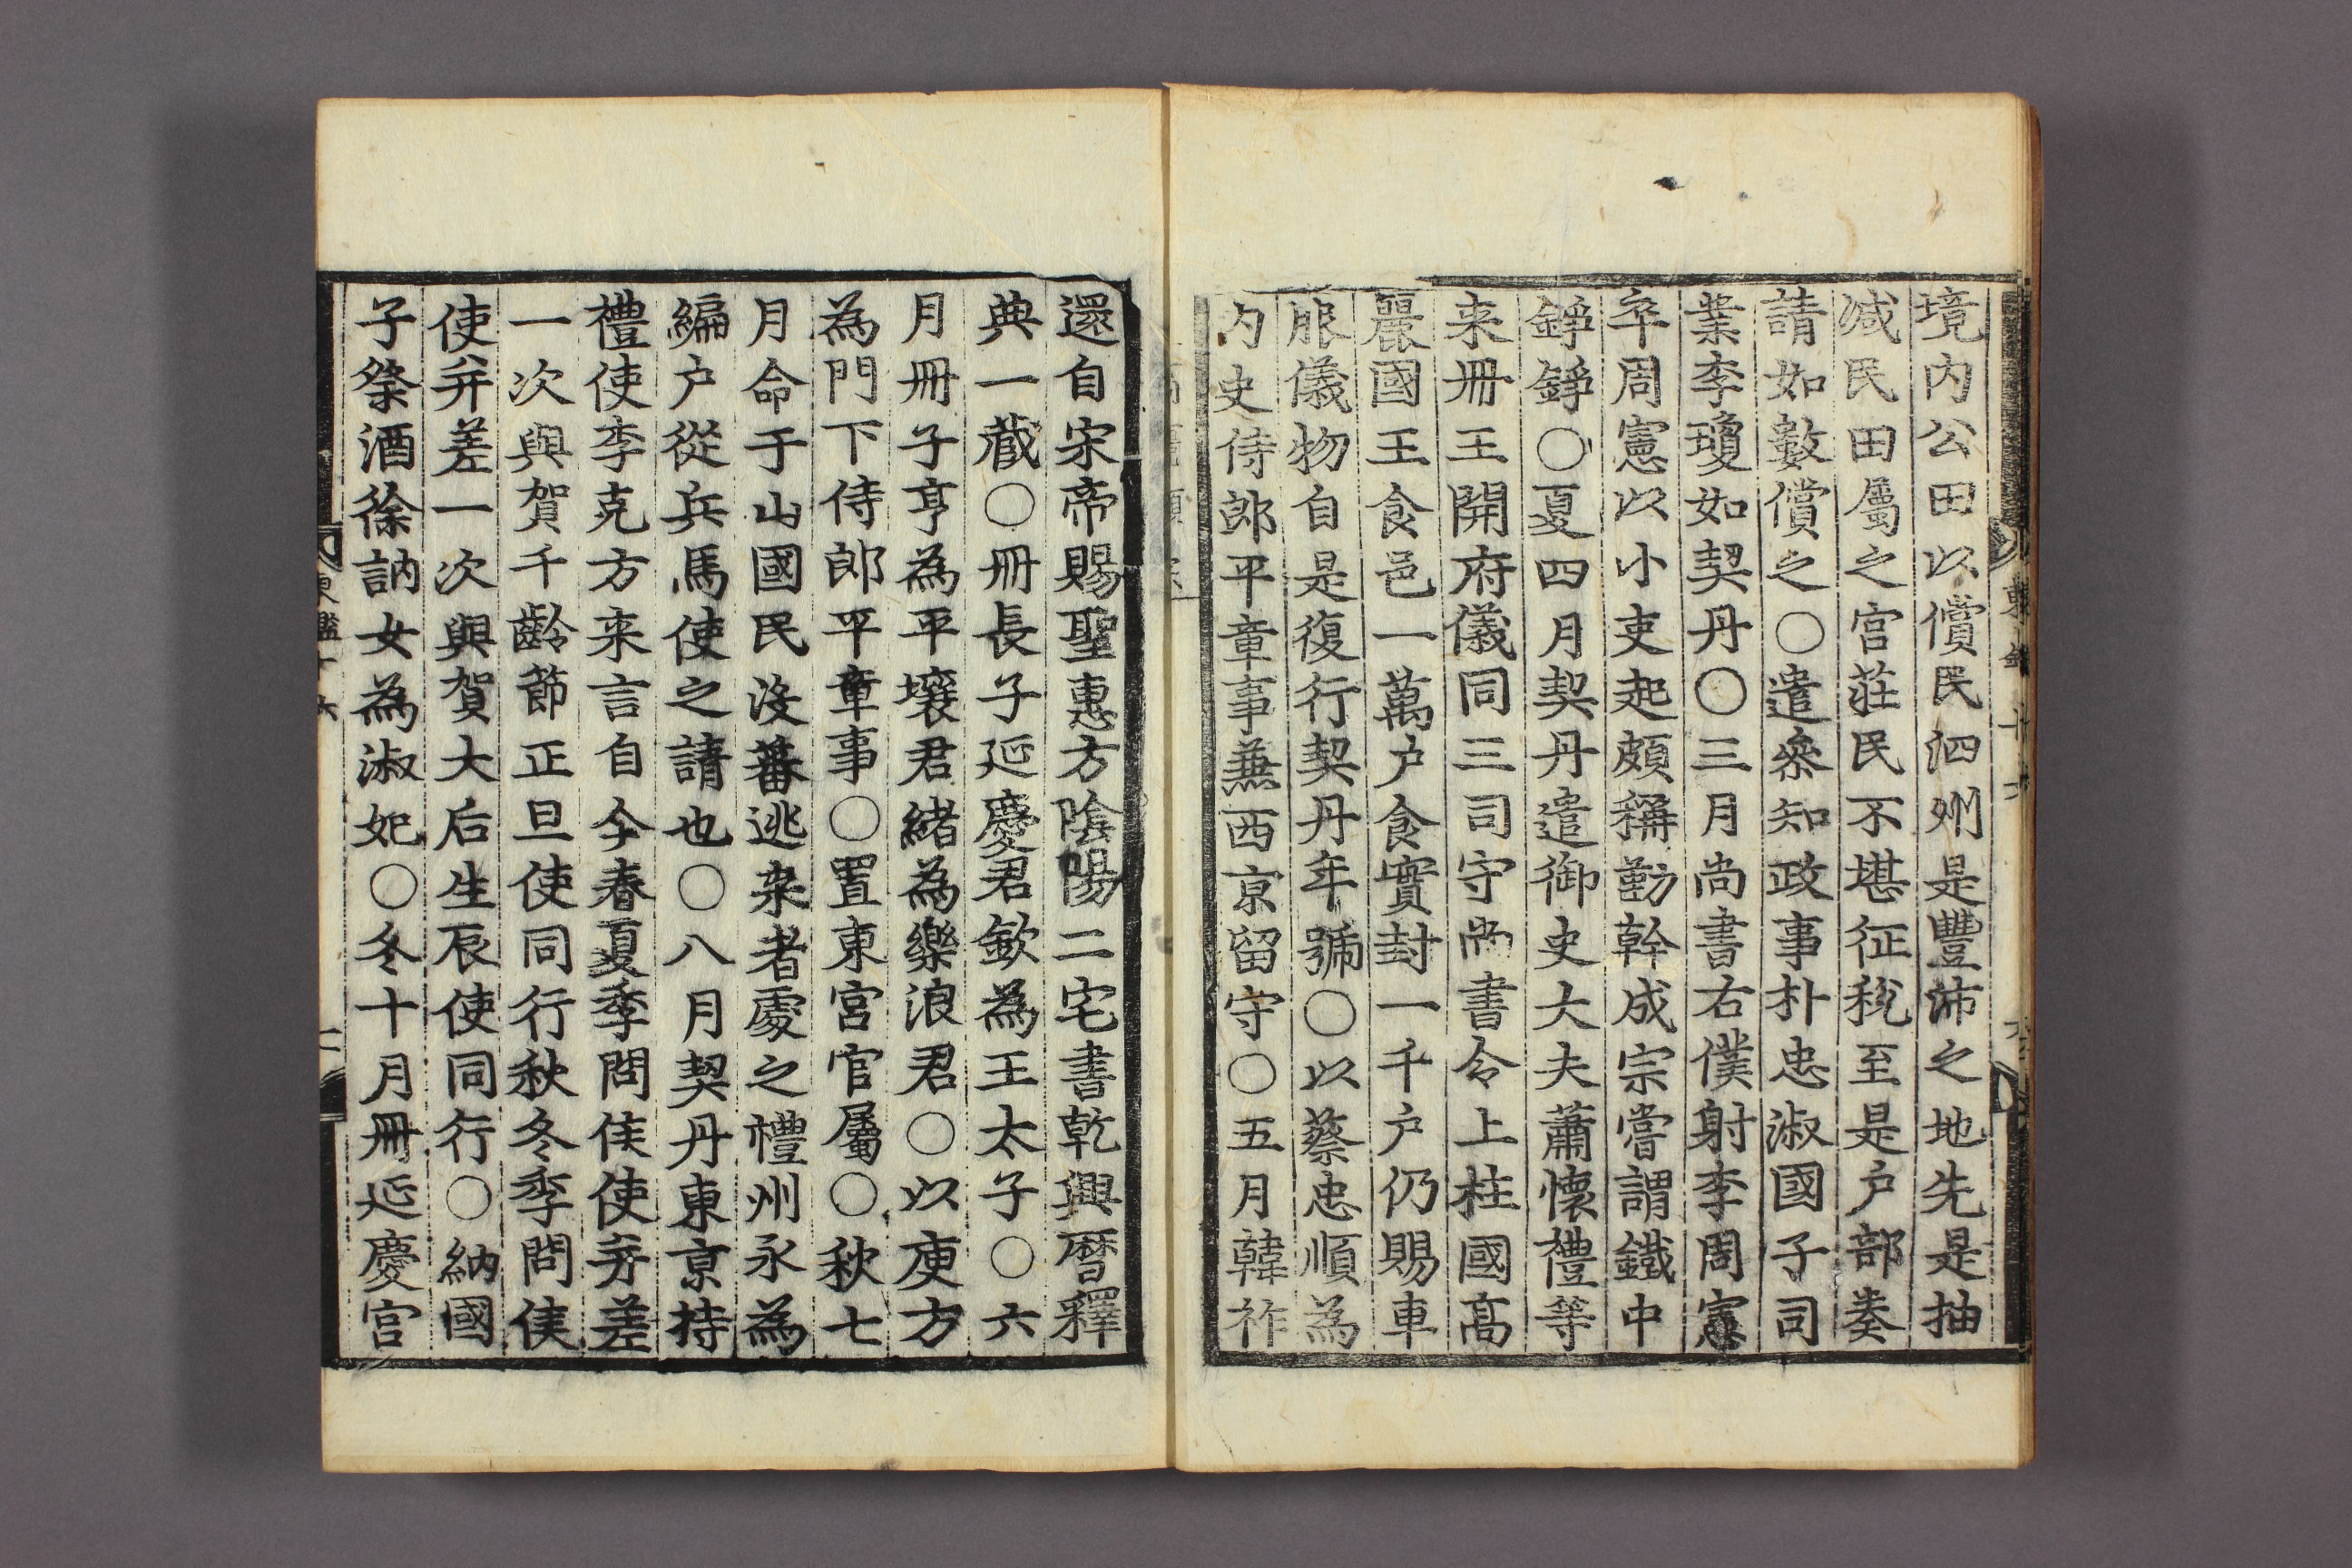 境内公田以償民泗州是豐沛之地先是抽
减民田屬之宫莊民不堪征稅至是户部奏
請如數償之〇遣叅知政事朴忠淑國子司
業李瓊如契丹〇三月尚書右僕射李周憲
卒周憲以小吏起頗稱勤幹成宗嘗謂鐵中
錚錚〇夏四月契丹遣御史大夫蕭懷禮等
来冊王開府儀同三司守尚書令上柱國高
麗國王食邑一萬户食實封一千户仍賜車
服儀物自是復行契丹年號〇以蔡忠順為
内史侍郎平章事兼西京留守〇五月韓祚
還自宋帝賜聖惠方陰陽二宅書乾興曆釋
典一藏〇冊長子延慶君欽為王太子〇六
月冊子亨為平壤君緒為樂浪君〇以庾方
為門下侍郎平章事〇置東宮官屬〇秋七
月命于山國民沒蕃逃来者處之禮州永為
編户從兵馬使之請也〇八月契丹東京持
禮使李克方来言自今春夏季問候使并差
一次與賀千齡節正旦使同行秋冬季問候
使并差一次與賀大后生辰使同行〇納國
子祭酒徐訥女為淑妃〇冬十月冊延慶宮